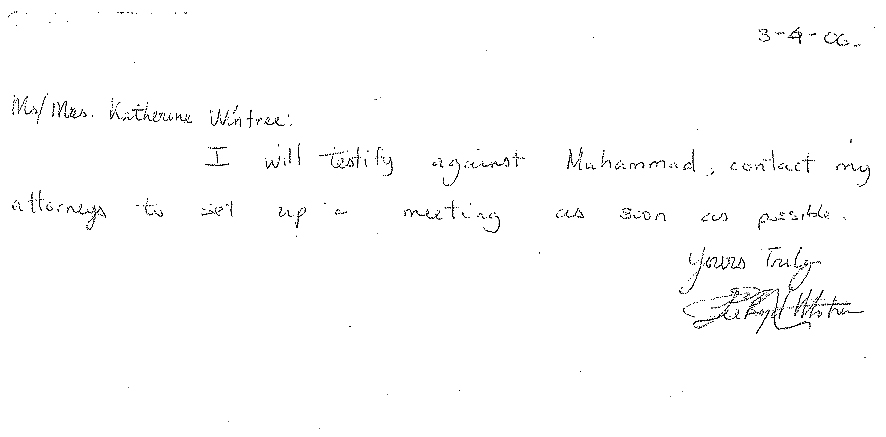 3-4-06.
Ms/Mrs. Katherine Wintree:
I will testify against Muhammad, contact my
attorneys to set up a meeting as soon as possible.
Yours Truly